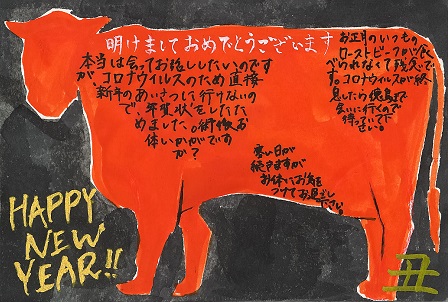 明けましておめでとうございます
本当は会ってお話ししたいのです
が、コロナウイルスのため直接
新年のあいさつに行けないの
で、年賀状をしたた
めました。御体お
体いかがですか
か?
お正月のいつもの
ローストビーフが食
べられなくて残念で
す。コロナウイルスが終
息したら徳島まで
会いに行くので
待っていて下
さい。
寒い日が
続きますが
お体にお気を
つけてお過ごし
下さい。
HAPPY
NEW
YEAR!!
丑